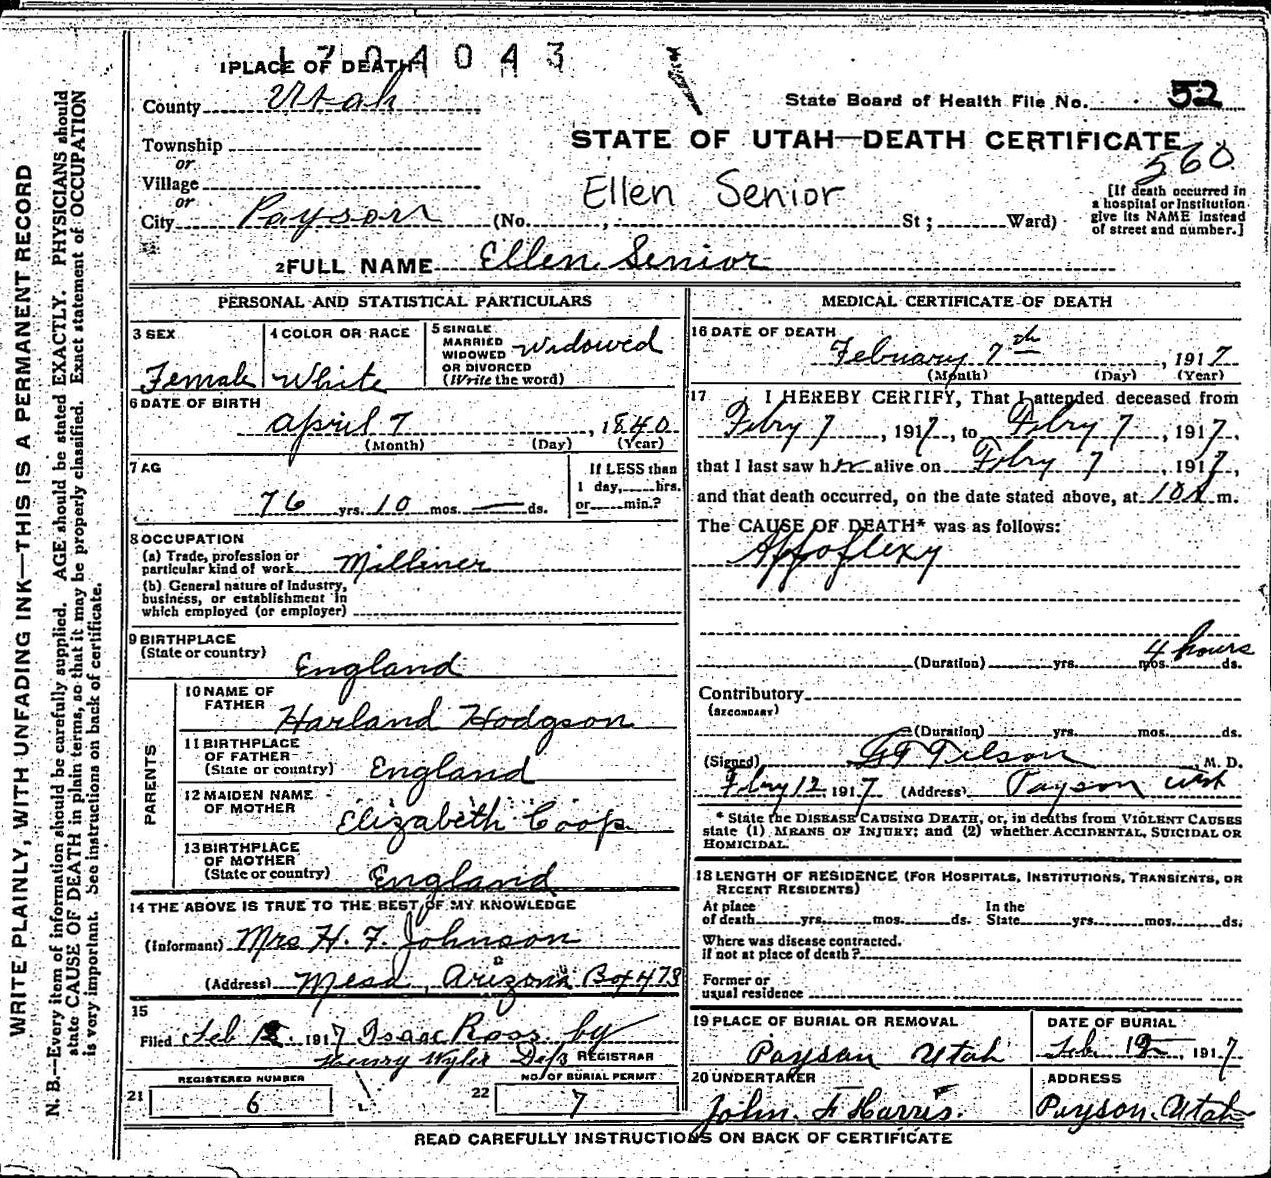 1704043
1 PLACE OF DEATH
County Utah
State Board of Health File No. 52
Township
or
Village
or
City Payson (No. , St ; Ward)
STATE OF UTAH—DEATH CERTIFICATE
560
Ellen Senior
[If death occurred in
a hospital or institution
give its NAME instead
of street and number.]
2 FULL NAME Ellen Senior
PERSONAL AND STATISTICAL PARTICULARS
3 SEX
Female
4 COLOR OR RACE
White
5 SINGLE
MARRIED
WIDOWED
OR DIVORCED
(Write the word)
Widowed
6 DATE OF BIRTH
April 7, 1840
(Month) (Day) (Year)
7 AG
76 yrs. 10 mos. — ds.
If LESS than
1 day, hrs.
or min.?
8 OCCUPATION
(a) Trade, profession or
particular kind of work Milliner
(b) General nature of Industry,
business, or establishment in
which employed (or employer)
9 BIRTHPLACE
(State or country)
England
PARENTS
10 NAME OF
FATHER
Harland Hodgson
11 BIRTHPLACE
OF FATHER
(State or country) England
12 MAIDEN NAME
OF MOTHER
Elizabeth Coop
13 BIRTHPLACE
OF MOTHER
(State or country) England
14 THE ABOVE IS TRUE TO THE BEST OF MY KNOWLEDGE
(Informant) Mrs H. F. Johnson
(Address) Mesa, Arizona Box 478
15
Filed Feb 1917 Isaac Ross by
Henry Wyler Dep REGISTRAR
REGISTERED NUMBER
21 6
NO. OF BURIAL PERMIT
22 7
MEDICAL CERTIFICATE OF DEATH
16 DATE OF DEATH
Febuary 7th, 1917
(Month) (Day) (Year)
17 I HEREBY CERTIFY, That I attended deceased from
Febry 7, 1917, to Febry 7, 1917,
that I last saw her alive on Febry 7, 1917,
and that death occurred, on the date stated above, at m.
The CAUSE OF DEATH* was as follows:
Appoplexy
4 hours
(Duration) yrs. mos. ds.
Contributory
(SECONDARY)
(Duration) yrs. mos. ds.
(Signed) Tilson M. D.
Febry 12, 1917 (Address) Payson Utah
* State the DISEASE CAUSING DEATH, or, in deaths from VIOLENT CAUSES
state (1) MEANS OF INJURY; and (2) whether ACCIDENTAL, SUICIDAL OR
HOMICIDAL.
18 LENGTH OF RESIDENCE (FOR HOSPITALS, INSTITUTIONS, TRANSIENTS, OR
RECENT RESIDENTS)
At place
of death yrs. mos. ds.
In the
State yrs. mos. ds.
Where was disease contracted.
if not at place of death?
Former or
usual residence
19 PLACE OF BURIAL OR REMOVAL
Payson Utah
DATE OF BURIAL
Feb. 12, 1917
20 UNDERTAKER
John F Harris.
ADDRESS
Payson. Utah
READ CAREFULLY INSTRUCTIONS ON BACK OF CERTIFICATE
WRITE PLAINLY, WITH UNFADING INK—THIS IS A PERMANENT RECORD
N. B.—Every item of information should be carefully supplied. AGE should be stated EXACTLY. PHYSICIANS should
state CAUSE OF DEATH in plain terms, so that it may be properly classified. Exact statement of OCCUPATION
is very important. See instructions on back of certificate.